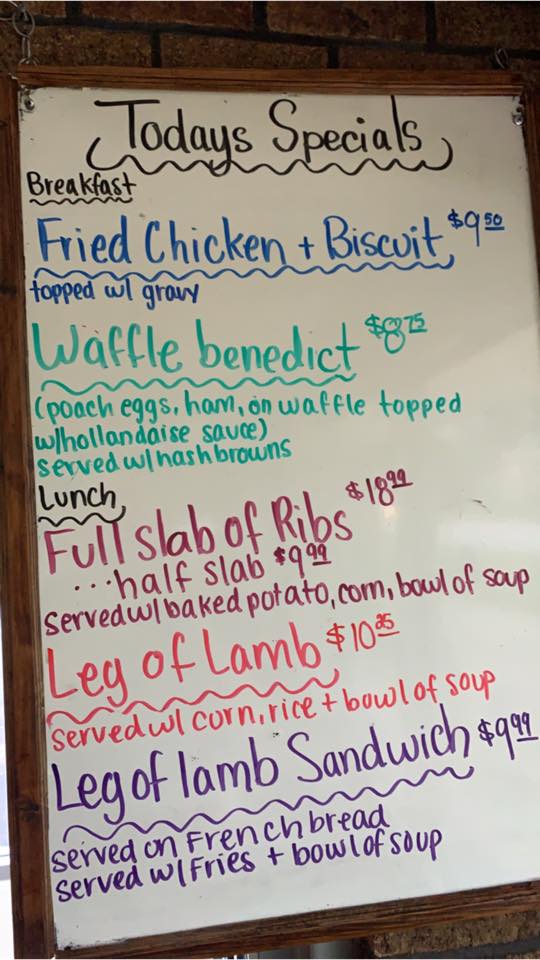 Todays Specials
Breakfast
Fried Chicken + Biscuit $9.50
topped w/ gravy
Waffle benedict $8.75
(poach eggs, ham, on waffle topped
w/hollandaise sauce)
served w/hashbrowns
Lunch
$18.99
Full slab of Ribs
...half slab $9.99
served w/ baked potato, corn, bowl of soup
Leg of Lamb $10.25
served w/ corn, rice + bowl of soup
Leg of lamb Sandwich $9.99
served on French bread
served w/ Fries + bowl of soup